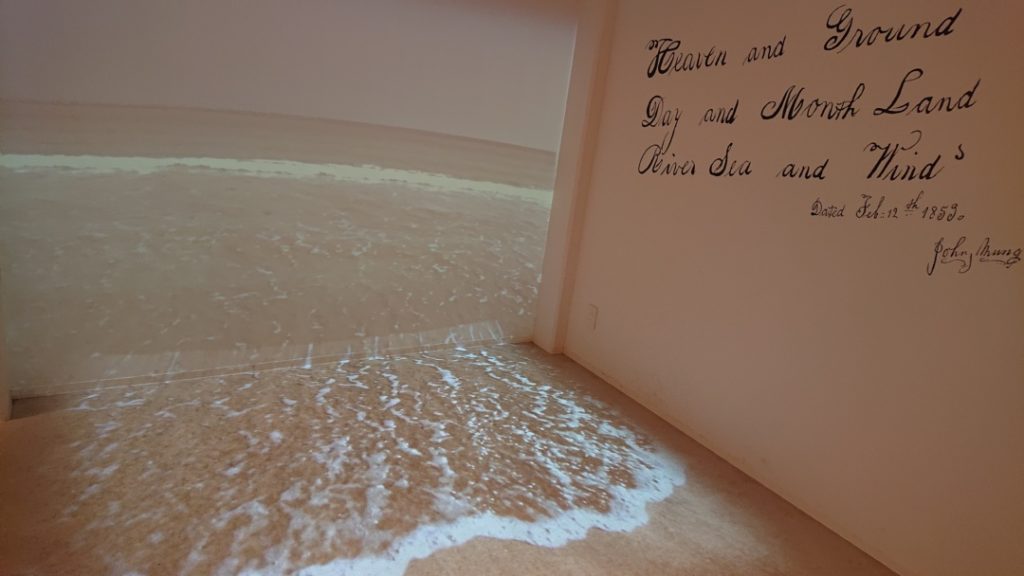 Heaven and Ground
Day and Month Land
River Sea and Wind's
Dated Feb=12th 1853.
John Mung